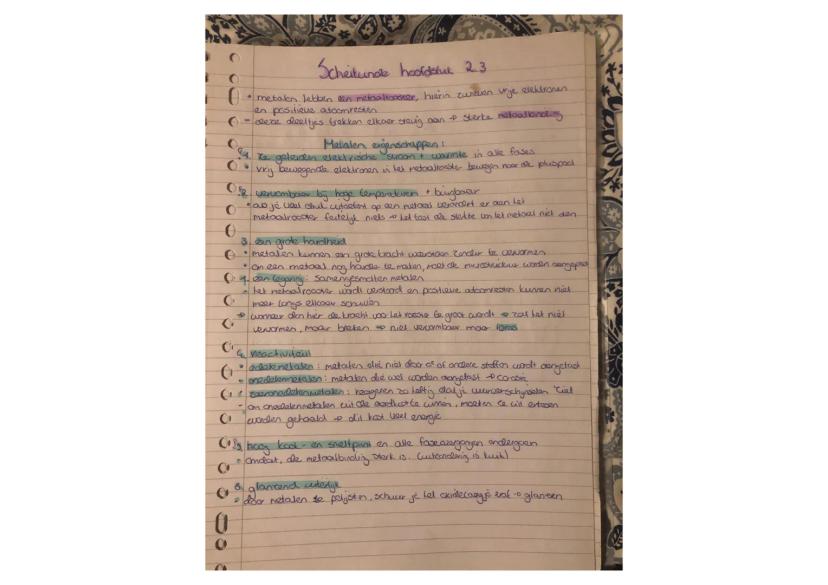 Scheikunde hoofdstuk 2.3
• metalen hebben een metaalrooster, hierin zweven vrije elektronen
en positieve atoomresten
- deze deeltjes trekken elkaar stevig aan → sterke metaalbinding
Metalen eigenschappen:
1. Ze geleiden elektrische stroom + warmte in alle fases
• vrij bewegende elektronen in het metaalrooster bewegen naar de pluspool
2. vervormbaar bij hoge temperaturen + buigbaar
• als je veel druk uitoefent op een metaal verandert er aan het
metaalrooster feitelijk niets → het tast de sterkte van het metaal niet aan
3. een grote hardheid
• metalen kunnen een grote kracht weerstaan zonder te vervormen
• om een metaal nog harder te maken, moet de microstructuur worden aangepast
• een legering: samengesmolten metalen
- het metaalrooster wordt verstoord en positieve atoomresten kunnen niet
meer langs elkaar schuiven
→ wanneer dan hier de kracht voor het rooster te groot wordt → zal het niet
vervormen, maar breken → niet vervormbaar maar
4. reactiviteit
• edelmetalen: metalen die niet door of andere stoffen wordt aangetast
• onedelmetalen: metalen die wel worden aangetast → corrosie
• zeeronedelmetalen: reageren zo heftig dat je vuurverschijnselen ziet
- om onedelmetalen uit de aardkorst te winnen, moeten ze uit ertsen
worden gehaald → dit kost veel energie
5. hoog kook- en smeltpunt en alle faseovergangen ondergaan
• omdat, de metaalbinding sterk is. (uitzondering is kwik)
6. glanzend uiterlijk
• door metalen te polijsten, schuur je het oxidelaagje eraf → glanzen